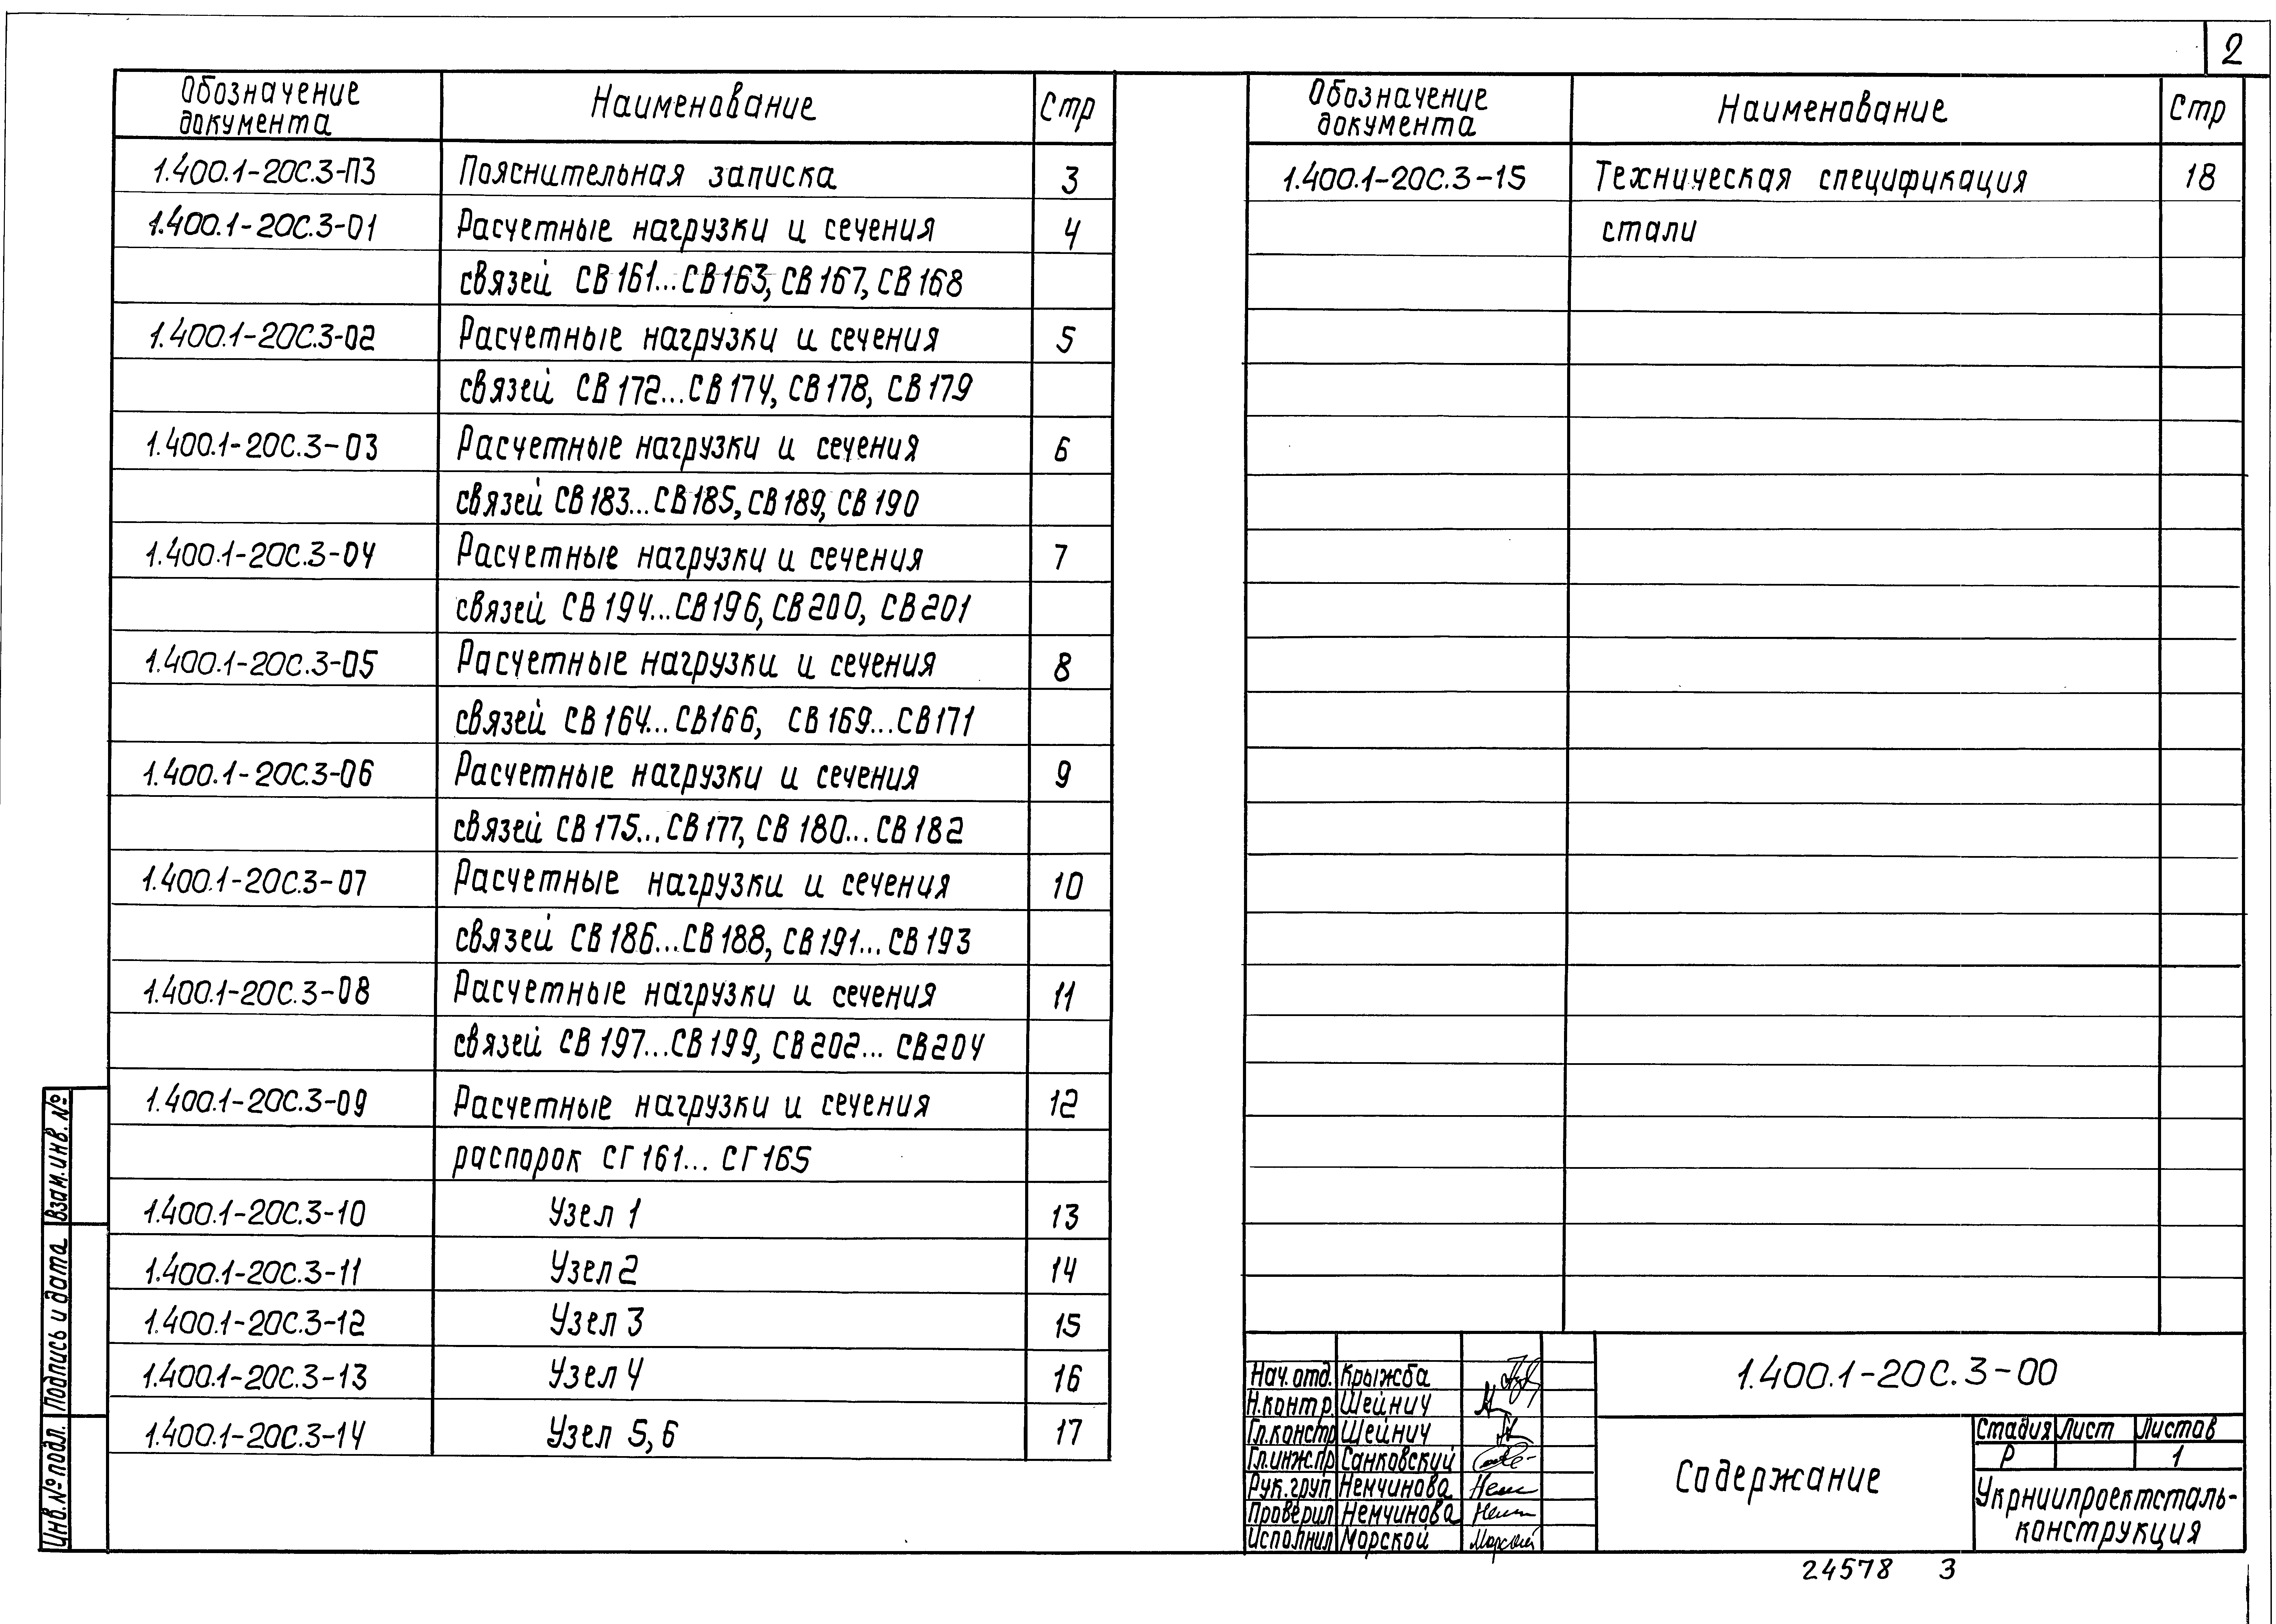 2
Обозначение документа Наименование Стр
1.400.1-20С.3-ПЗ Пояснительная записка 3
1.400.1-20С.3-01 Расчетные нагрузки и сечения 4
связей СВ161...СВ163, СВ167, СВ168
1.400.1-20С.3-02 Расчетные нагрузки и сечения 5
связей СВ172...СВ174, СВ178, СВ179
1.400.1-20С.3-03 Расчетные нагрузки и сечения 6
связей СВ183...СВ185, СВ189, СВ190
1.400.1-20С.3-04 Расчетные нагрузки и сечения 7
связей СВ194...СВ196, СВ200, СВ201
1.400.1-20С.3-05 Расчетные нагрузки и сечения 8
связей СВ164...СВ166, СВ169...СВ171
1.400.1-20С.3-06 Расчетные нагрузки и сечения 9
связей СВ175...СВ177, СВ180...СВ182
1.400.1-20С.3-07 Расчетные нагрузки и сечения 10
связей СВ186...СВ188, СВ191...СВ193
1.400.1-20С.3-08 Расчетные нагрузки и сечения 11
связей СВ197...СВ199, СВ202...СВ204
1.400.1-20С.3-09 Расчетные нагрузки и сечения 12
распорок СГ161...СГ165
1.400.1-20С.3-10 Узел 1 13
1.400.1-20С.3-11 Узел 2 14
1.400.1-20С.3-12 Узел 3 15
1.400.1-20С.3-13 Узел 4 16
1.400.1-20С.3-14 Узел 5,6 17
Обозначение документа Наименование Стр
1.400.1-20С.3-15 Техническая спецификация 18
стали
Взам.инв.№
Подпись и дата
Инв.№подл.
Нач.отд. Крыжба
Н.контр. Шейнич
Гл.констр Шейнич
Гл.инж.пр Санковский
Рук.груп Немчинова
Проверил Немчинова
Исполнил Морской
1.400.1-20С.3-00
Содержание
Стадия Лист Листов
Р 1
Укрниипроектсталь-
конструкция
24578 3